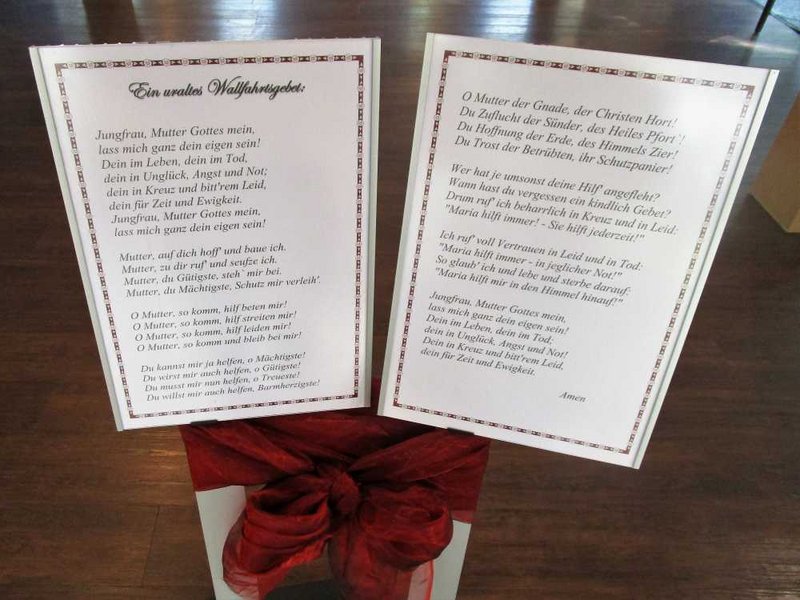 Ein uraltes Wallfahrtsgebet:
Jungfrau, Mutter Gottes mein,
lass mich ganz dein eigen sein!
Dein im Leben, dein im Tod,
dein in Unglück, Angst und Not;
dein in Kreuz und bitt'rem Leid,
dein für Zeit und Ewigkeit.
Jungfrau, Mutter Gottes mein,
lass mich ganz dein eigen sein!
Mutter, auf dich hoff' und baue ich.
Mutter, zu dir ruf' und seufze ich.
Mutter, du Gütigste, steh` mir bei.
Mutter, du Mächtigste, Schutz mir verleih'.
O Mutter, so komm, hilf beten mir!
O Mutter, so komm, hilf streiten mir!
O Mutter, so komm, hilf leiden mir!
O Mutter, so komm und bleib bei mir!
Du kannst mir ja helfen, o Mächtigste!
Du wirst mir auch helfen, o Gütigste!
Du musst mir nun helfen, o Treueste!
Du willst mir auch helfen, Barmherzigste!
O Mutter der Gnade, der Christen Hort!
Du Zuflucht der Sünder, des Heiles Pfort`!
Du Hoffnung der Erde, des Himmels Zier!
Du Trost der Betrübten, ihr Schutzpanier!
Wer hat je umsonst deine Hilf' angefleht?
Wann hast du vergessen ein kindlich Gebet?
Drum ruf' ich beharrlich in Kreuz und in Leid:
"Maria hilft immer! - Sie hilft jederzeit!"
Ich ruf' voll Vertrauen in Leid und in Tod:
"Maria hilft immer - in jeglicher Not!"
So glaub' ich und lebe und sterbe darauf:
"Maria hilft mir in den Himmel hinauf!"
Jungfrau, Mutter Gottes mein,
lass mich ganz dein eigen sein!
Dein im Leben, dein im Tod;
dein in Unglück, Angst und Not!
Dein in Kreuz und bitt'rem Leid,
dein für Zeit und Ewigkeit.
Amen